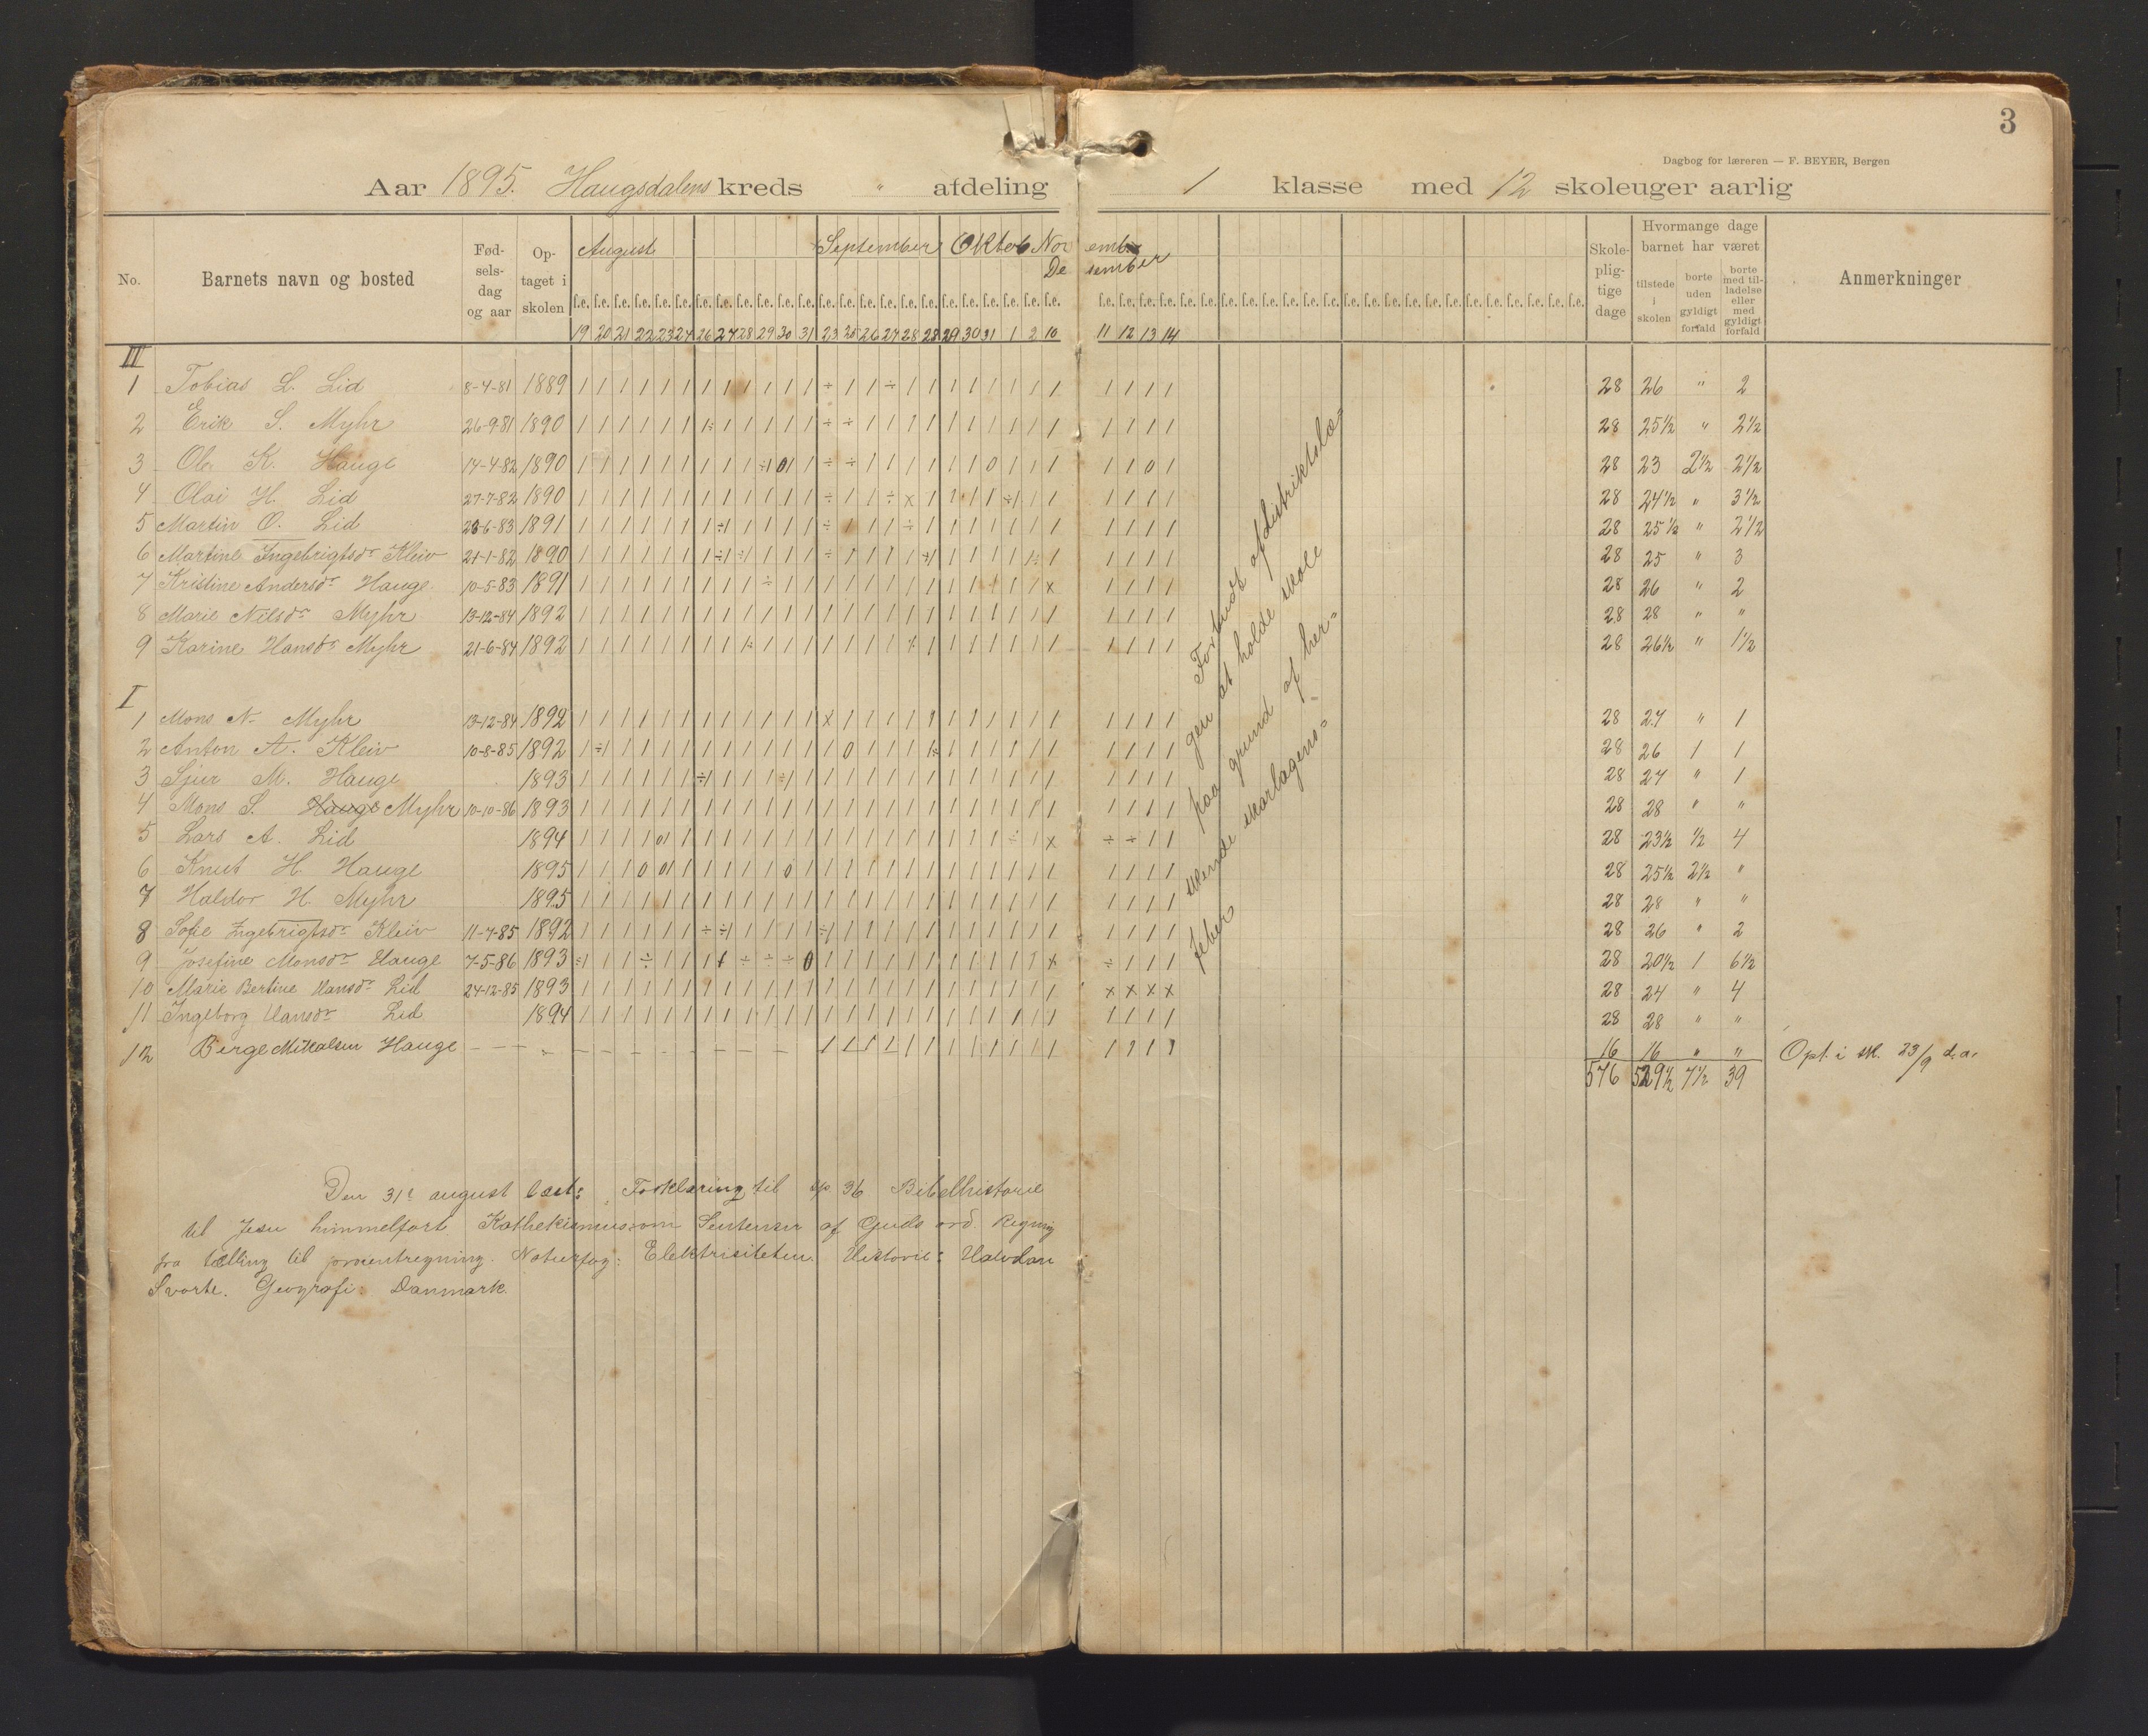 3
Dagbog for læreren — F. BEYER, Bergen
Aar 1895. Haugsdalens kreds " afdeling 1 klasse med 12 skoleuger aarlig
No. Barnets navn og bosted Fød-sels-dag og aar Op-taget i skolen August September Oktob November Desember Skole-plig-tige dage Hvormange dage barnet har været Anmerkninger
tilstede i skolen borte uden gyldigt forfald borte med til-ladelse eller med gyldigt forfald
19 20 21 22 23 24 26 27 28 29 30 31 23 25 26 27 28 28 29 30 31 1 2 10 11 12 13 14
II
1 Tobias L. Lid 8-4-81 1889 28 26 " 2
2 Erik S. Myhr 26-9-81 1890 28 25½ " 2½
3 Ole K. Hauge 14-4-82 1890 28 23 2½ 2½
4 Olai H. Lid 27-7-82 1890 28 24½ " 3½
5 Martin O. Lid 1891 28 25½ " 2½
6 Martine Ingebrigtsdr Kleiv 21-1-82 1890 28 25 " 3
7 Kristine Andersdr Hauge 10-5-83 1891 28 26 " 2
8 Marie Nilsdr Myhr 13-12-84 1892 28 28 " "
9 Karine Hansdr Myhr 21-6-84 1892 28 26½ " 1½
I
1 Mons N. Myhr 13-12-84 1892 28 27 " 1
2 Anton A. Kleiv 10-8-85 1892 28 26 1 1
3 Sjur M. Hauge 1893 28 27 " 1
4 Mons S. Hauge Myhr 10-10-86 1893 28 28 " "
5 Lars A. Lid 1894 28 23½ ½ 4
6 Knut H. Hauge 1895 28 25½ 2½ "
7 Haldor H. Myhr 1895 28 28 " "
8 Sofie Ingebrigtsdr Kleiv 11-7-85 1892 28 26 " 2
9 Josefine Monsdr Hauge 7-5-86 1893 28 20½ 1 6½
10 Marie Bertine Hansdr Lid 24-12-85 1893 28 24 " 4
11 Ingeborg Hansdr Lid 1894 28 28 " "
12 Berge Mikkalsen Hauge 16 16 " " Opt. i sk. 23/9 d.a.
576 529½ 7½ 39
Forbudt af distriktslæ=
gen at holde skole
paa grund af her=
skende skarlagens=
feber
Den 31te august læst: Forklaring til sp 36 Bibelhistorie
til Jesu himmelfart Kathekismus som Sentenser af Guds ord. Regning
fra tælling til procentregning. Naturfag: Elektrisiteten. Historie: Halvdan
Svarte. Geografi: Danmark.